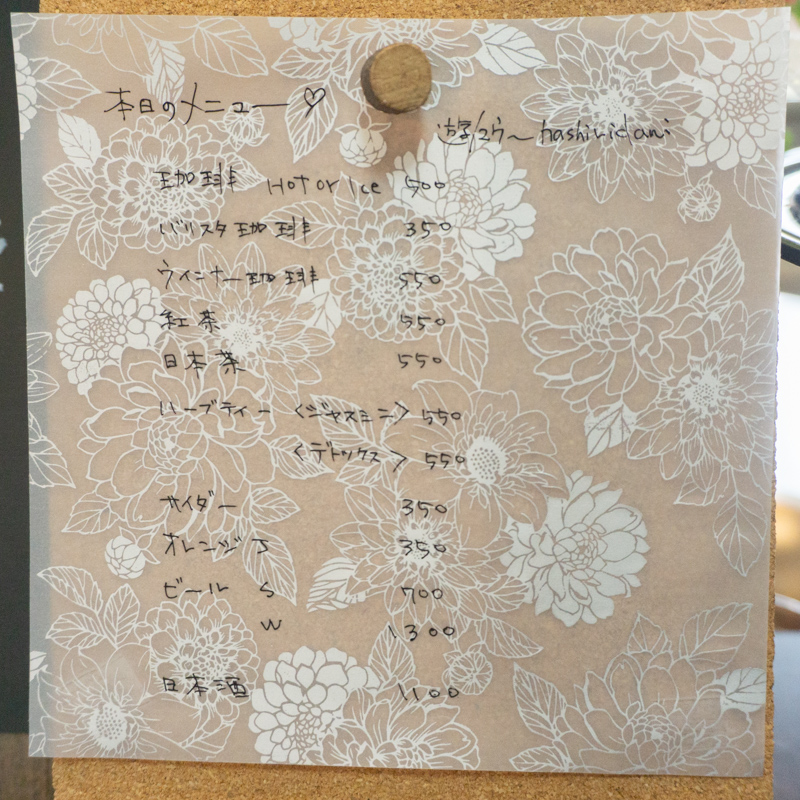 本日のメニュー♡
hashiridani
珈琲 Hot or Ice 500
バリスタ珈琲 350
ウインナー珈琲 550
紅茶 550
日本茶 550
ハーブティー 〈ジャスミン〉 550
〈デトックス〉 550
サイダー 350
オレンジJ 350
ビール S 700
W 1300
日本酒 1100